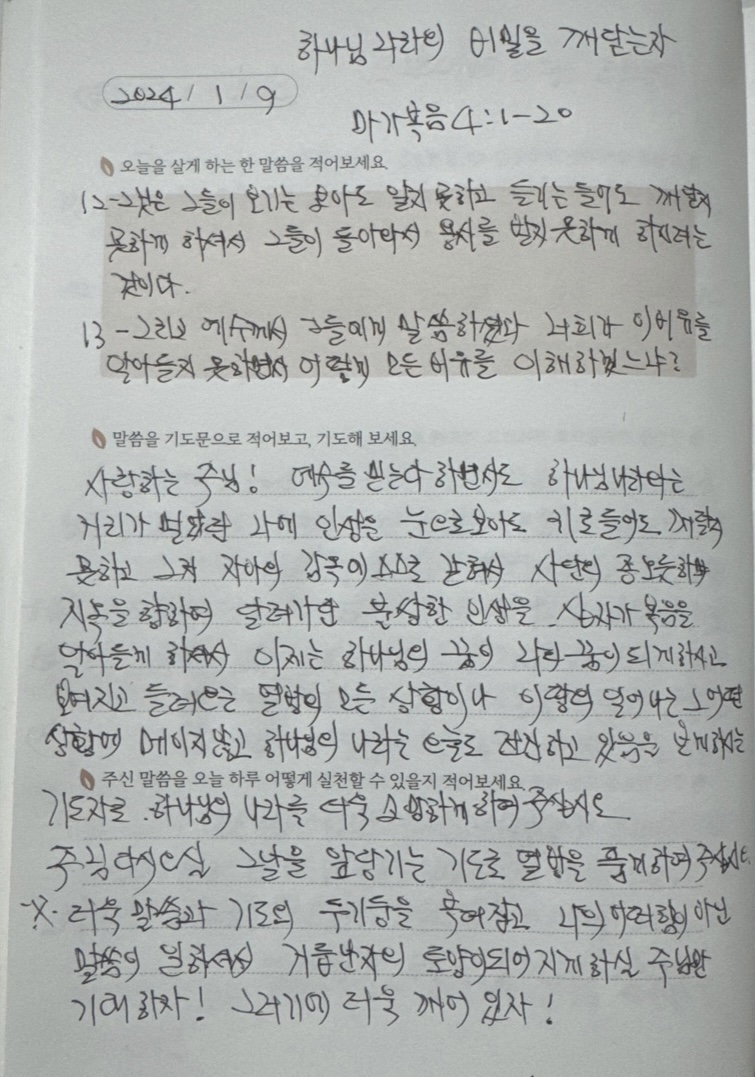 하나님 나라의 비밀을 깨닫는자
2024/ 1 / 9
마가복음 4:1-20
오늘을 살게 하는 한 말씀을 적어보세요
12-그것은 그들이 보기는 보아도 알지 못하고 듣기는 들어도 깨닫지
못하게 하셔서 그들이 돌아와서 용서를 받지 못하게 하시려는
것이다.
13-그리고 예수께서 그들에게 말씀하셨다 너희가 이 비유를
알아듣지 못하면서 어떻게 모든 비유를 이해하겠느냐?
말씀을 기도문으로 적어보고, 기도해 보세요
사랑하는 주님! 예수를 믿는다 하면서도 하나님나라와는
거리가 멀었던 과거 인생은 눈으로보아도 귀로들어도 깨닫지
못하고 그저 자아의 감옥에 스스로 갇혀서 사단의 종노릇하며
지옥을 향하여 달려가던 불쌍한 인생을 십자가 복음을
알아듣게 하셔서 이제는 하나님의 꿈이 나의 꿈이 되게하시고
보여지고 들려오는 열방의 모든 상황이나 일어나는 그어떤
상황에 매이지않고 하나님의 나라는 오늘도 전진하고 있음을 보게하시는
주신 말씀을 오늘 하루 어떻게 실천할 수 있을지 적어보세요
기도자로 하나님의 나라를 더욱 소망하게 하여 주십시오
주님 다시오실 그날을 앞당기는 기도로 열방을 품게하여 주십시오.
※. 더욱 말씀과 기도의 두기둥을 붙여잡고 나의 어떠함이 아닌
말씀이 일하셔서 거듭난자의 토양이되어지게 하실 주님만
기대하자! 그러기에 더욱 깨어 있자!